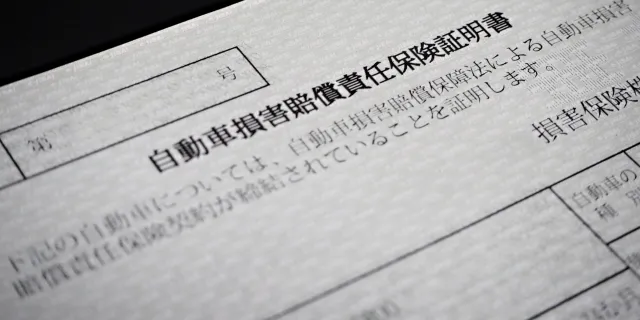 第 号
自動車損害賠償責任保険証明書
下記の自動車については、自動車損害賠償保障法による自動車損害
賠償責任保険契約が締結されていることを証明します。
損害保険
自動車の
種 別